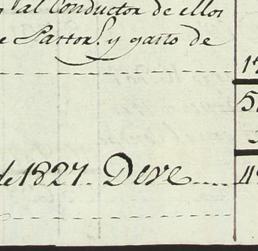 al Conductor de ellos
e Pastor.^s y gasto de
de 1827. Deve